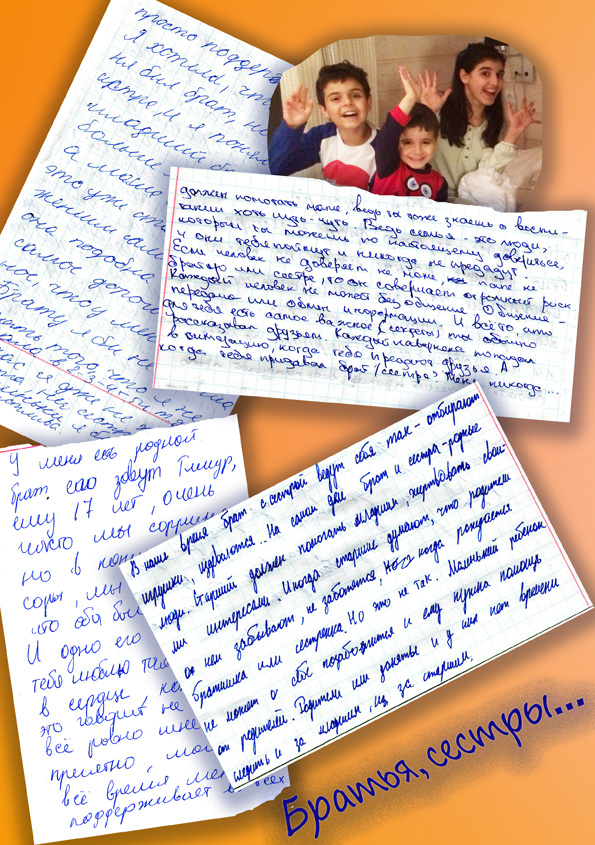 просто поддерж
Я хотела, что
ня был брат, не
сестра, и я поним
младший бр
больше
а мама
это уже ст
женим сам
она подобна
самое дорог
ное, что у мен
Брату я бы не
должен помогать маме, ведь ты тоже знаешь о воспи-
тании хоть чуть-чуть. Ведь семья - это люди,
которым ты можешь по настоящему довериться,
и они тебя поймут и никогда не предадут.
Если человек не доверяет не маме, не папе не
брату или сестре, то он совершает огромный риск.
Каждый человек не может без общения. Общение -
передача или обмен информации. И всё то, что
для тебя есть самое важное (секреты) ты обычно
рассказывал друзьям. Каждый наверняка попадал
в ситуацию когда тебя предают друзья. А
когда тебя придавал брат/сестра? Меня никогда...
У меня есть родной
брат. его зовут Тимур,
ему 17 лет, очень
часто мы ссорим
но в кон
соры, мы
что оба бы
И одно его
тебя люблю
в сердце, ко
это говорит не
всё равно мне
приятно, ма
всё время ме
поддерживает в всех
В наше время брат с сестрой ведут себя так - отбирают
игрушки, издеваются.. На самом деле брат и сестра - родные
люди. Старший должен помогать младшим, жертвовать свои-
ми интересами. Иногда старшие думают, что родители
о нем забывают, не заботятся, когда рождается
братишка или сестренка. Но это не так. Маленький ребенок
не может о себе позаботится и ему нужна помощь
от родителей. Родители или заняты и у них нет времени
следить и за младшим, и за старшим.
Братья, сестры...